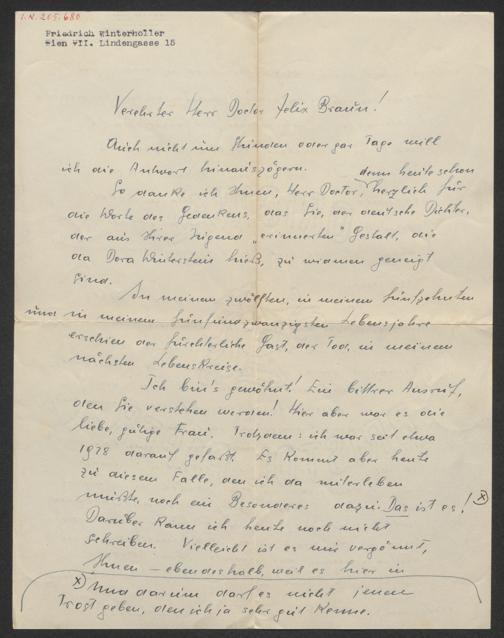 I.N. 205.680
Friedrich Winterholler
Wien VII. Lindengasse 15
Verehrter Herr Doctor Felix Braun!
Auch nicht um Stunden oder gar Tage will
ich die Antwort hinauszögern.
denn heute schon
So danke ich Ihnen, Herr Doctor, herzlich für
die Worte des Gedenkens, das Sie, der deutsche Dichter,
der aus Ihrer Jugend „erinnerten" Gestalt, die
da Dora Winterstein hieß, zu widmen geneigt
sind.
In meinem zwölften, in meinem fünfzehnten
und in meinem fünfundzwanzigsten Lebensjahre
erschien der fürchterliche Gast, der Tod, in meinem
nächsten Lebenskreise.
Ich bin's gewöhnt! Ein bittrer Ausruf,
den Sie verstehen werden! Hier aber war es die
liebe, gütige Frau. Trotzdem: ich war seit etwa
darauf gefaßt. Es kommt aber heute
zu diesem Falle, den ich da miterleben
mußte, noch ein Besonderes dazu. Das ist es! x)
Darüber kann ich heute noch nicht
schreiben. Vielleicht ist es mir vergönnt,
Ihnen – ebendeshalb, weil es hier in
x) Und darum darf es nicht jenen
Trost geben, den ich ja sehr gut kenne.